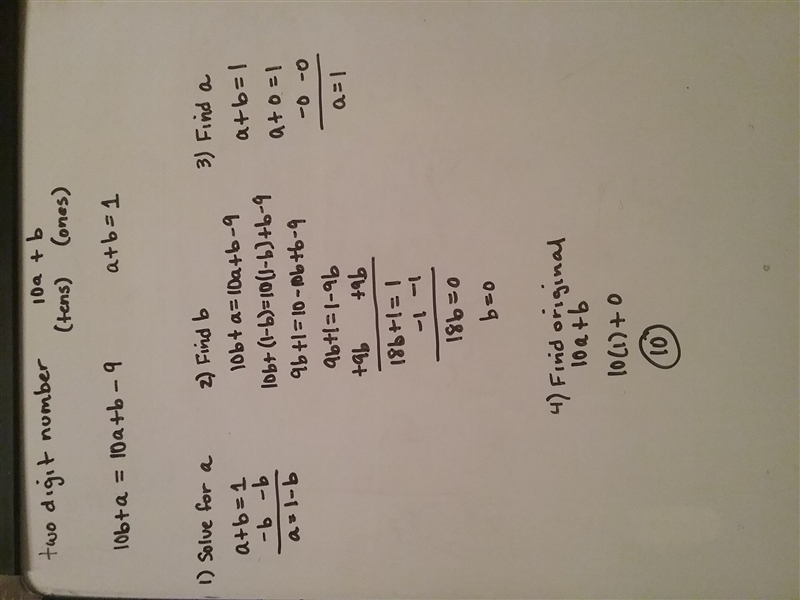 two digit number 10a + b
(tens) (ones)
10b+a = 10a+b-9 a+b=1
1) Solve for a
a+b=1
-b -b
a=1-b
2) Find b
10b+a=10a+b-9
10b+(1-b)=10(1-b)+b-9
9b+1=10-10b+b-9
9b+1=1-9b
+9b +9b
18b+1=1
-1 -1
18b=0
b=0
3) Find a
a+b=1
a+0=1
-0 -0
a=1
4) Find original
10a+b
10(1)+0
10